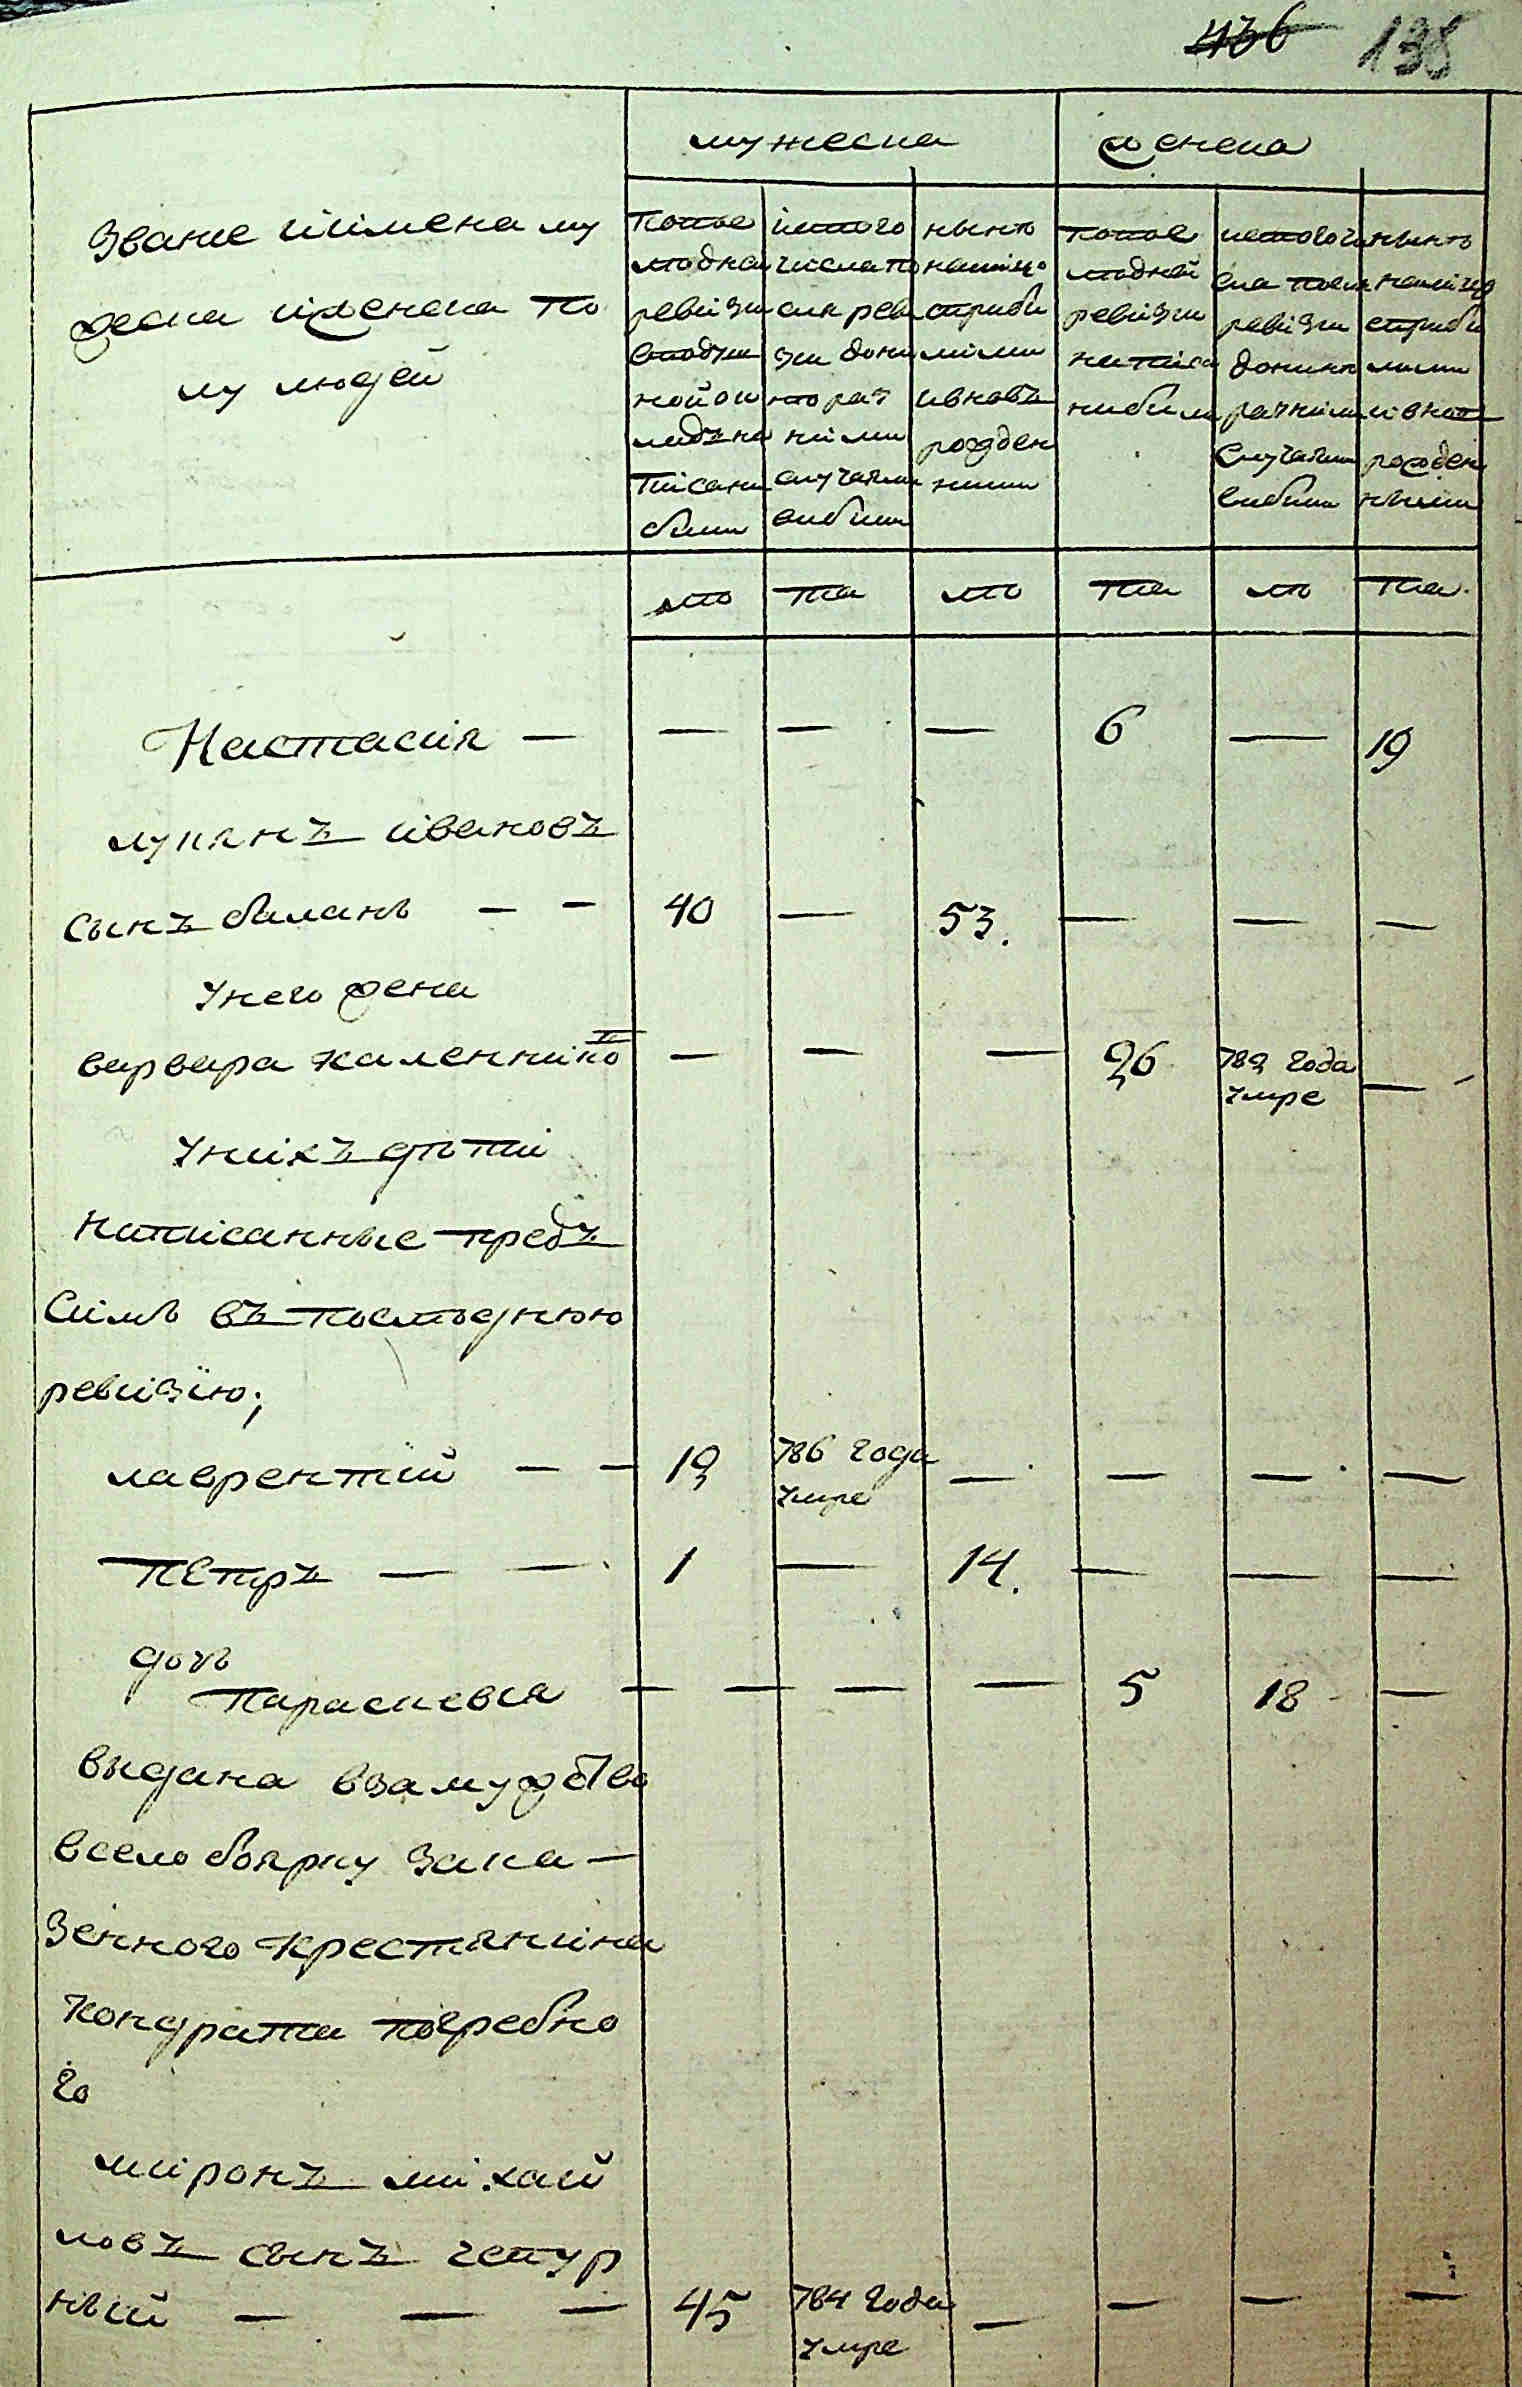 436 138
мужеска женска
Звание иимена му
жеска иженска по
лу людей
попос
ледней
ревизи
вподуш
ной ок
ладъ на
писани
были
истого
числа по
сле реви
зи доны
не раз
ними
случаями
выбыли
ныне
налицо
сприбы
лыми
ивновъ
рожден
ними
попос
ледней
ревизи
написа
ны были
истого чи
сла посл
ревизи
донине
разними
случаями
выбыли
ныне
налицо
сприбы
лыми
ивнов
рожден
ными
ле та ле та ле та
Настасия — — — — 6 — 19
лукянъ ивановъ
сынъ баланъ — — 40 — 53. — — —
унего жена
варвара каленико — — — 26 782 года умре —
унихъ дети
написанные предъ
симъ въ последнюю
ревизию;
лаврентий — — 12 786 года умре — — — —
петръ — — 1 — 14. — — —
дочь
параскевия — — — — 5 18 —
выдана взамужство
всело боярку зака—
зенного крестянина
кондрата погребно
го
миронъ михай
ловъ сынъ чепур
ный — — — 45 784 года умре — — — —